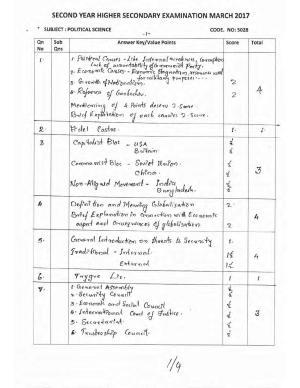 SECOND YEAR HIGHER SECONDARY EXAMINATION MARCH 2017
-1-
SUBJECT : POLITICAL SCIENCE CODE. NO: 5028
Qn No Sub Qns Answer Key/Value Points Score Total
1. 1. Political Causes - Like Internal weakness, corruption
lack of accountability of Communist Party.
2. Economic Causes - Economic Stagnation, resources used
for military purposes
3. Growth of Nationalism. 2
4. Reforms of Gorbachev. 2 4
Mentioning of 4 Points Score 2 - Score.
Brief Explanation of each carries 2 - Score.
2. Fidel Castro 1. 1
3 Capitalist Bloc - USA ½
Britain ½
Communist Bloc - Soviet Union. ½
China. ½ 3
Non-Aligned Movement - India ½
Bangladesh. ½
4 Definition and Meaning Globalisation 2
Brief Explanation in Connection with Economic
aspect and Consequences of globalisation 2 4
5. General Introduction on threats to Security 1.
Traditional - Internal 1½ 4
External 1½
6 1 1
7. 1. General Assembly ½
2 - Security Council ½
3 - Economic and Social Council ½
4 - International Court of Justice. ½ 3
5 - Secretariat ½
6 - Trusteeship Council ½
1/9